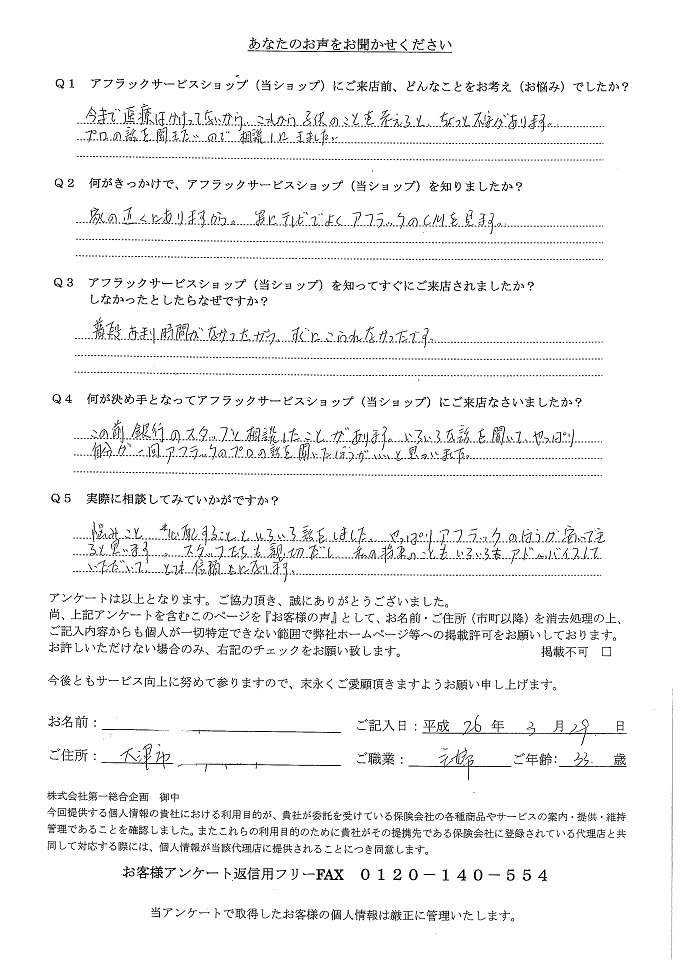 あなたのお声をお聞かせください
Q1 アフラックサービスショップ（当ショップ）にご来店前、どんなことをお考え（お悩み）でしたか？
今まで医療はかけってないから、これから子供のことを考えると、ちょっと不安があります。
プロの話を聞きたいので相談しにきました。
Q2 何がきっかけで、アフラックサービスショップ（当ショップ）を知りましたか？
家の近くにありますから。 テレビでよくアフラックのCMを見ます。
Q3 アフラックサービスショップ（当ショップ）を知ってすぐにご来店されましたか？
しなかったとしたらなぜですか？
普段あまり時間がなかったから、すぐにこられなかったです。
Q4 何が決め手となってアフラックサービスショップ（当ショップ）にご来店なさいましたか？
この前銀行のスタッフと相談したことがあります。いろいろな話を聞いて、やっぱり
自分が一回アフラックのプロの話を聞いたほうがいいと思いました。
Q5 実際に相談してみていかがですか？
悩みこと 心配することといろいろ話をしました。やっぱりアフラックのほうが
ると思います。スタッフたちも親切だし、私の将来のこともいろいろアドバイスして
いただいて、とても になります。
アンケートは以上となります。ご協力頂き、誠にありがとうございました。
尚、上記アンケートを含むこのページを『お客様の声』として、お名前・ご住所（市町以降）を消去処理の上、
ご記入内容からも個人が一切特定できない範囲で弊社ホームページ等への掲載許可をお願いしております。
お許しいただけない場合のみ、右記のチェックをお願い致します。 掲載不可 □
今後ともサービス向上に努めて参りますので、末永くご愛顧頂きますようお願い申し上げます。
お名前： ご記入日：平成 26 年 3 月 29 日
ご住所： 大津市 ご職業： ご年齢： 33 歳
株式会社第一総合企画 御中
今回提供する個人情報の貴社における利用目的が、貴社が委託を受けている保険会社の各種商品やサービスの案内・提供・維持
管理であることを確認しました。またこれらの利用目的のために貴社がその提携先である保険会社に登録されている代理店と共
同して対応する際には、個人情報が当該代理店に提供されることにつき同意します。
お客様アンケート返信用フリーFAX ０１２０－１４０－５５４
当アンケートで取得したお客様の個人情報は厳正に管理いたします。